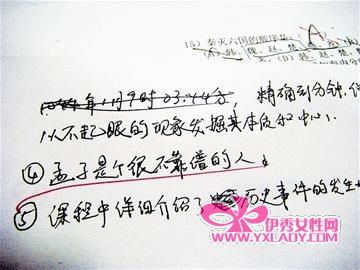 15) 秦灭六国的顺序是:
(A) 韩、魏、赵、楚
(D) 韩、赵、
年11月9时03.44分, 精确到分钟,
从不起眼的现象发掘其本质和中心。
④ 孟子是个很不靠谱的人。
⑤ 课程中详细介绍了历史事件的发生
伊秀女性网
WWW.YXLADY.COM